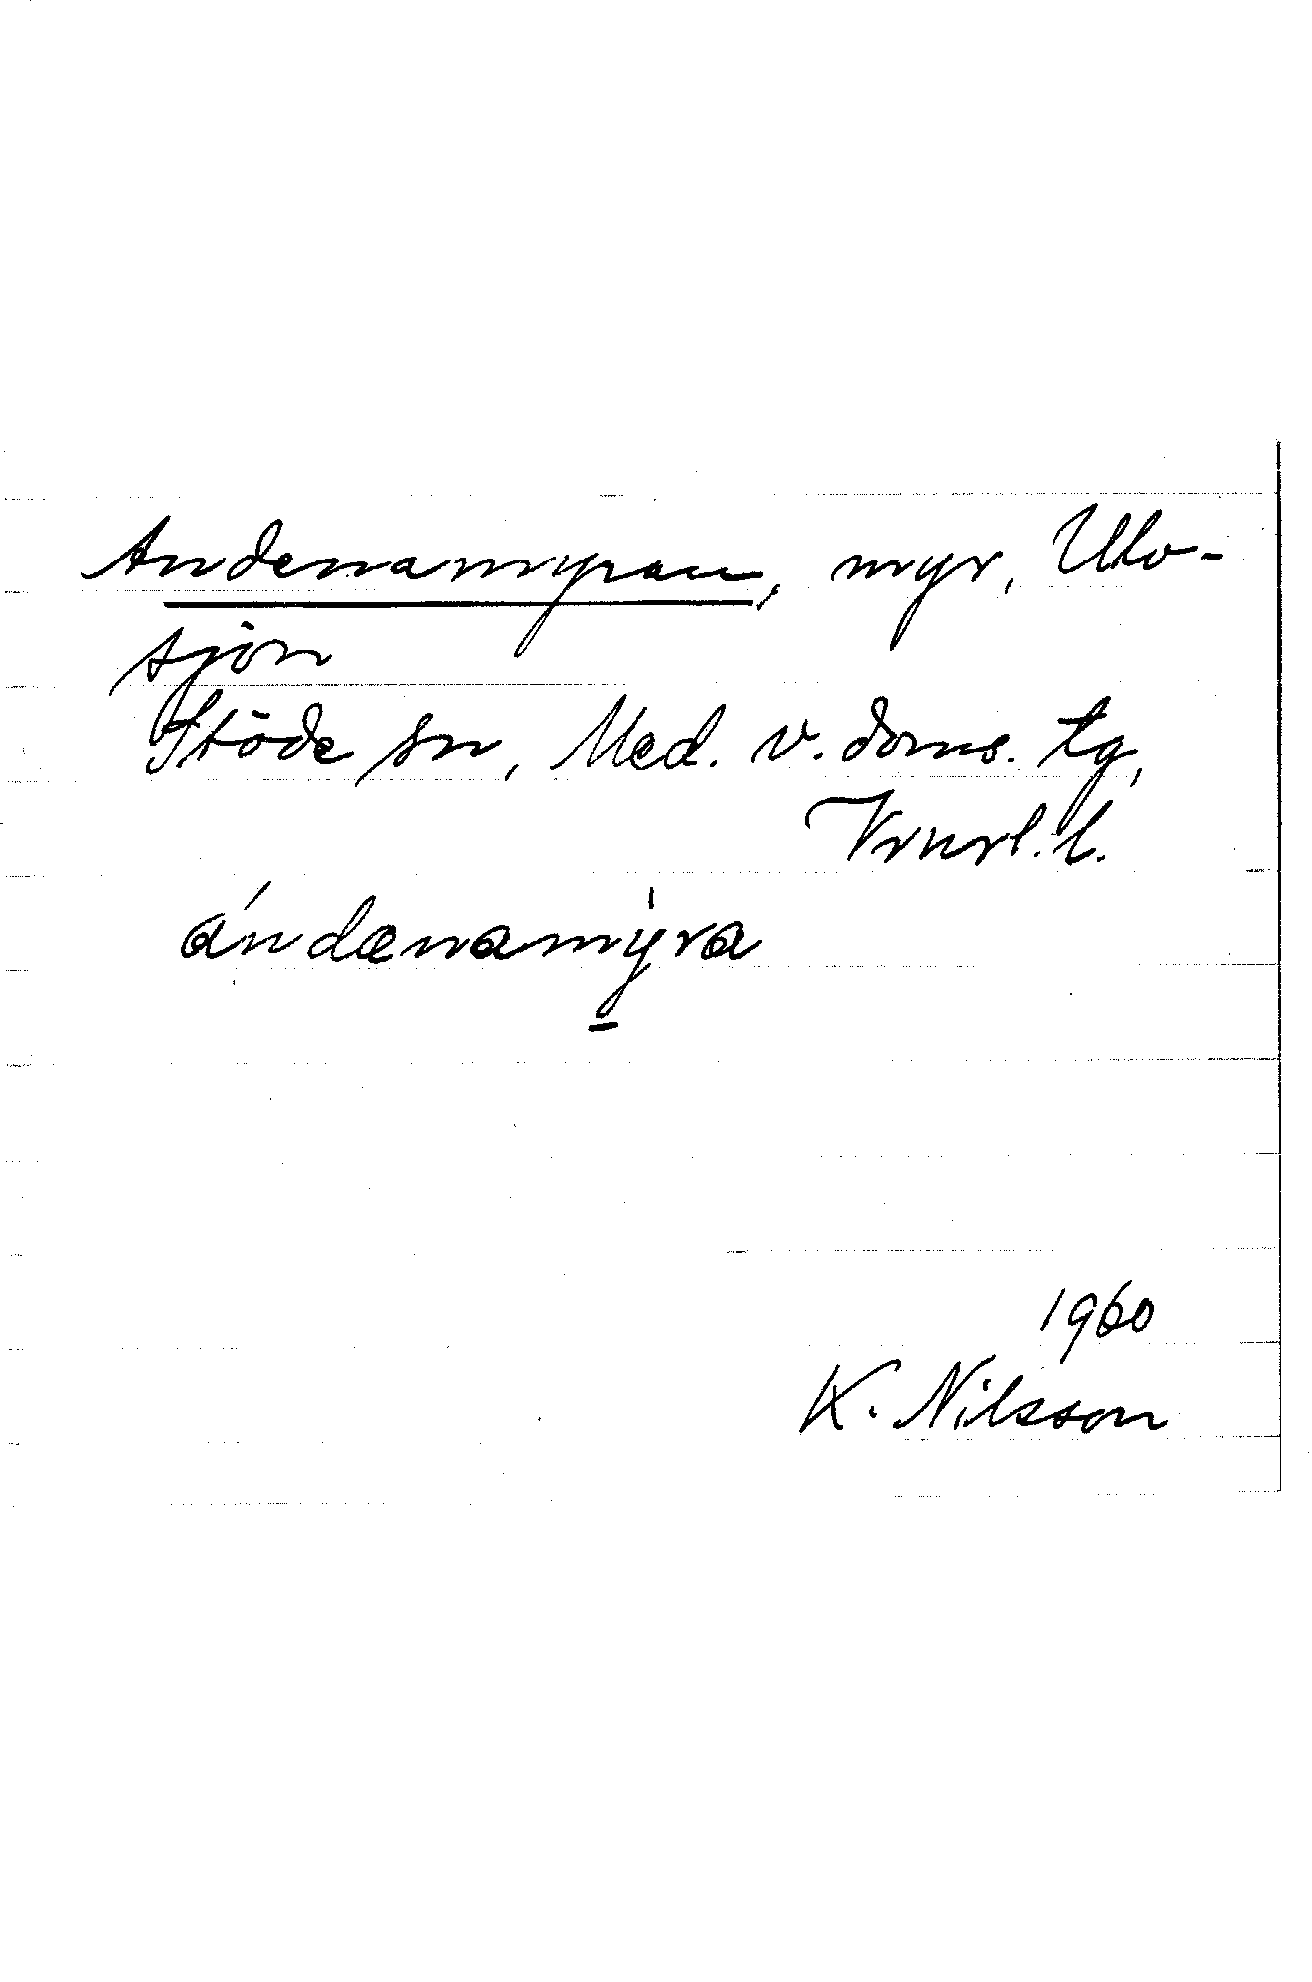 Andenamyran, myr, Ulv-
sjön
Stöde sn, Med. v. doms. tg,
Vrnrl. l.
ándænamýra
1960
K. Nilsson